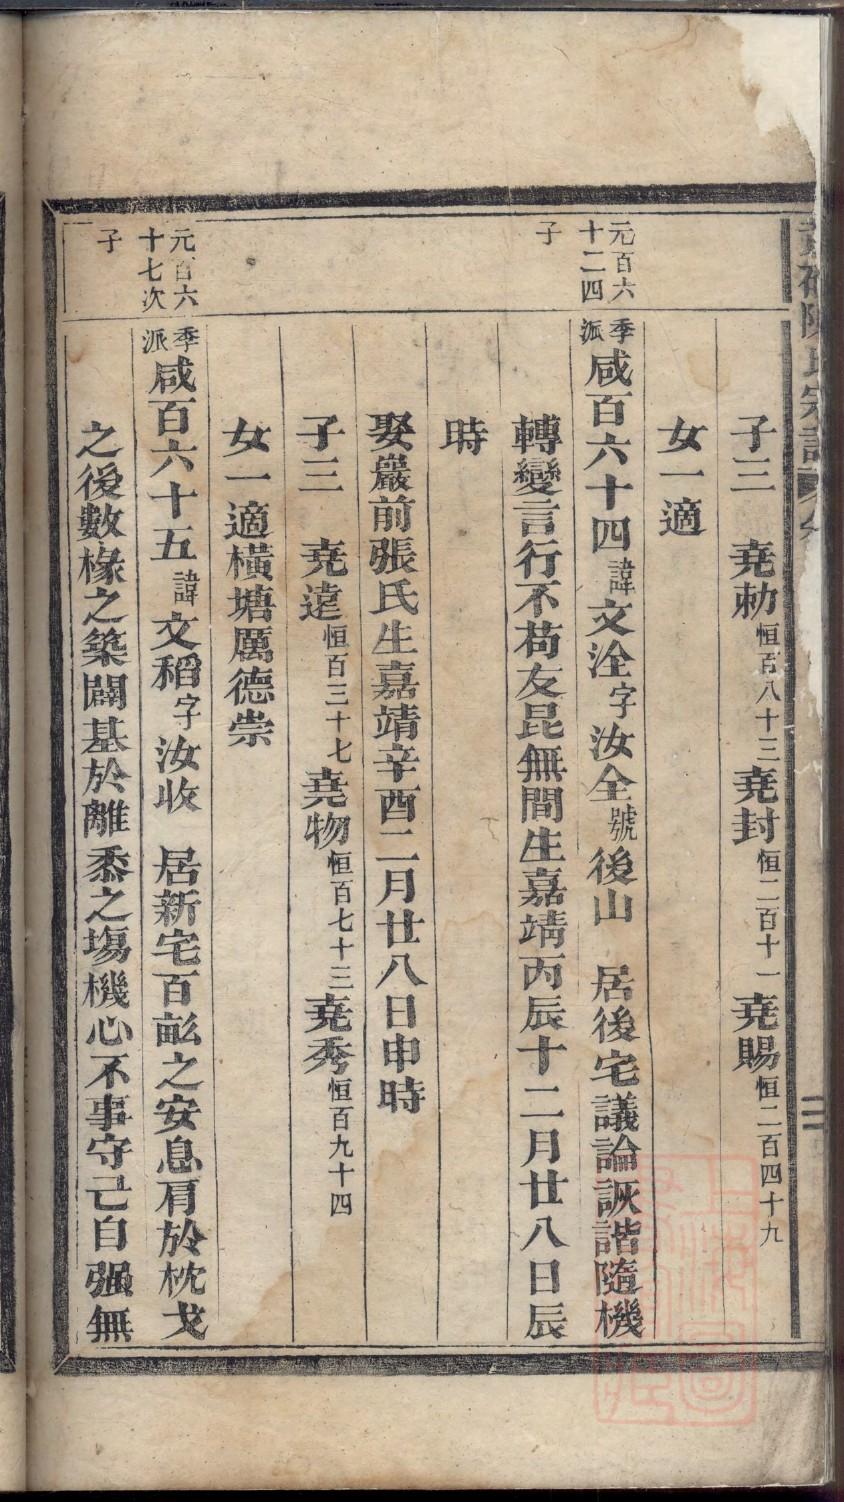 陳氏宗譜
子三　堯勑恒百八十三堯封恒二百十一堯賜恒二百四十九
女一適
元百六十二四子
季派咸百六十四諱文洤字汝全號後山　居後宅議論詼諧隨機
轉變言行不苟友昆無間生嘉靖丙辰十二月廿八日辰
時
娶嚴前張氏生嘉靖辛酉二月廿八日申時
子三　堯遠恒百三十七堯物恒百七十三堯秀恒百九十四
女一適橫塘厲德崇
元百六十七次子
季派咸百六十五諱文稻字汝收　居新宅百畝之安息肩於枕戈
之後數椽之築闢基於離黍之塲機心不事守己自强無